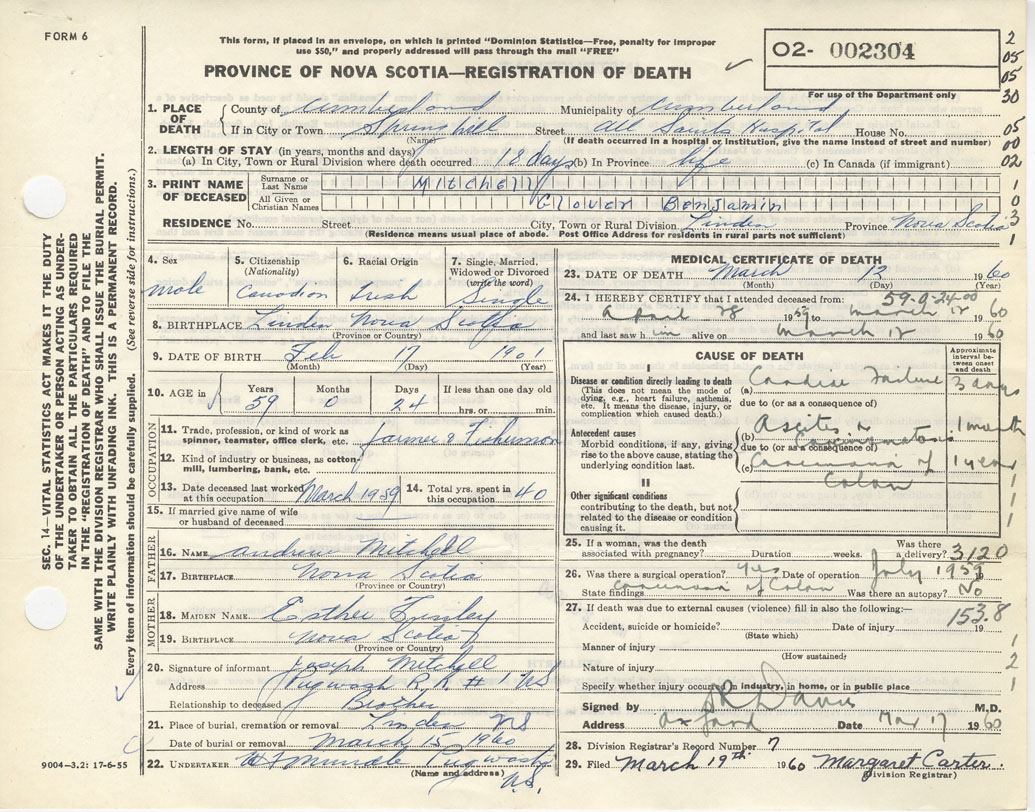 FORM 6
This form, if placed in an envelope, on which is printed "Dominion Statistics—Free, penalty for improper
use $50," and properly addressed will pass through the mail "FREE"
PROVINCE OF NOVA SCOTIA—REGISTRATION OF DEATH
02- 002304
For use of the Department only
2
05
05
30
05
00
02
1
0
3
1
1. PLACE OF DEATH
County of Cumberland Municipality of Cumberland
If in City or Town Springhill Street All Saints Hospital House No.
(Name) (If death occurred in a hospital or institution, give the name instead of street and number)
2. LENGTH OF STAY (in years, months and days)
(a) In City, Town or Rural Division where death occurred 18 days (b) In Province life (c) In Canada (if immigrant)
3. PRINT NAME OF DECEASED
Surname or Last Name Mitchell
All Given or Christian Names Glover Benjamin
RESIDENCE No. Street City, Town or Rural Division Linden Province Nova Scotia
(Residence means usual place of abode. Post Office Address for residents in rural parts not sufficient)
SEC. 14—VITAL STATISTICS ACT MAKES IT THE DUTY
OF THE UNDERTAKER OR PERSON ACTING AS UNDER-
TAKER TO OBTAIN ALL THE PARTICULARS REQUIRED
IN THE "REGISTRATION OF DEATH" AND TO FILE THE
SAME WITH THE DIVISION REGISTRAR WHO SHALL ISSUE THE BURIAL PERMIT.
WRITE PLAINLY WITH UNFADING INK. THIS IS A PERMANENT RECORD.
Every item of information should be carefully supplied. (See reverse side for instructions.)
4. Sex male
5. Citizenship (Nationality) Canadian
6. Racial Origin Irish
7. Single, Married, Widowed or Divorced (write the word) Single
8. BIRTHPLACE Linden Nova Scotia
(Province or Country)
9. DATE OF BIRTH Feb 17 1901
(Month) (Day) (Year)
10. AGE in Years 59 Months 0 Days 24 If less than one day old
hrs. or min.
OCCUPATION
11. Trade, profession, or kind of work as
spinner, teamster, office clerk, etc. farmer & Fisherman
12. Kind of industry or business, as cotton-
mill, lumbering, bank, etc.
13. Date deceased last worked at this occupation March 1959 14. Total yrs. spent in this occupation 40
15. If married give name of wife
or husband of deceased
FATHER
16. NAME Andrew Mitchell
17. BIRTHPLACE Nova Scotia
(Province or Country)
MOTHER
18. MAIDEN NAME Esther
19. BIRTHPLACE Nova Scotia
(Province or Country)
20. Signature of informant Joseph Mitchell
Address Pugwash R.R. # 1 N.S.
Relationship to deceased Brother
21. Place of burial, cremation or removal Linden NS
Date of burial or removal March 15 1960
22. UNDERTAKER Pugwash
(Name and address) N.S.
9004—3.2: 17-6-55
MEDICAL CERTIFICATE OF DEATH
23. DATE OF DEATH March 12 1960
(Month) (Day) (Year)
59-0-24-00
24. I HEREBY CERTIFY that I attended deceased from:
April 28 1959 to March 12 1960
and last saw him alive on March 12 1960
CAUSE OF DEATH
Approximate interval between onset and death
I
Disease or condition directly leading to death
(This does not mean the mode of
dying, e.g., heart failure, asthenia,
etc. It means the disease, injury, or
complication which caused death.)
(a) Cardiac Failure 3 days
due to (or as a consequence of)
Antecedent causes
Morbid conditions, if any, giving
rise to the above cause, stating the
underlying condition last.
(b) Ascites 1 month
due to (or as a consequence of) Carcinomatosis
(c) Carcinoma of Colon 1 year
II
Other significant conditions
contributing to the death, but not
related to the disease or condition
causing it.
1
1
1
1
25. If a woman, was the death
associated with pregnancy? Duration weeks. Was there a delivery? 3120
26. Was there a surgical operation? yes Date of operation July 1959
State findings Carcinoma of Colon Was there an autopsy? No
27. If death was due to external causes (violence) fill in also the following:—
153.8
Accident, suicide or homicide? Date of injury 19
(State which)
Manner of injury 1
(How sustained)
Nature of injury 2
Specify whether injury occurred in industry, in home, or in public place 1
Signed by Davis M.D.
Address Oxford Date Mar 17 1960
28. Division Registrar's Record Number 7
29. Filed March 19th 1960 Margaret Carter.
(Division Registrar)